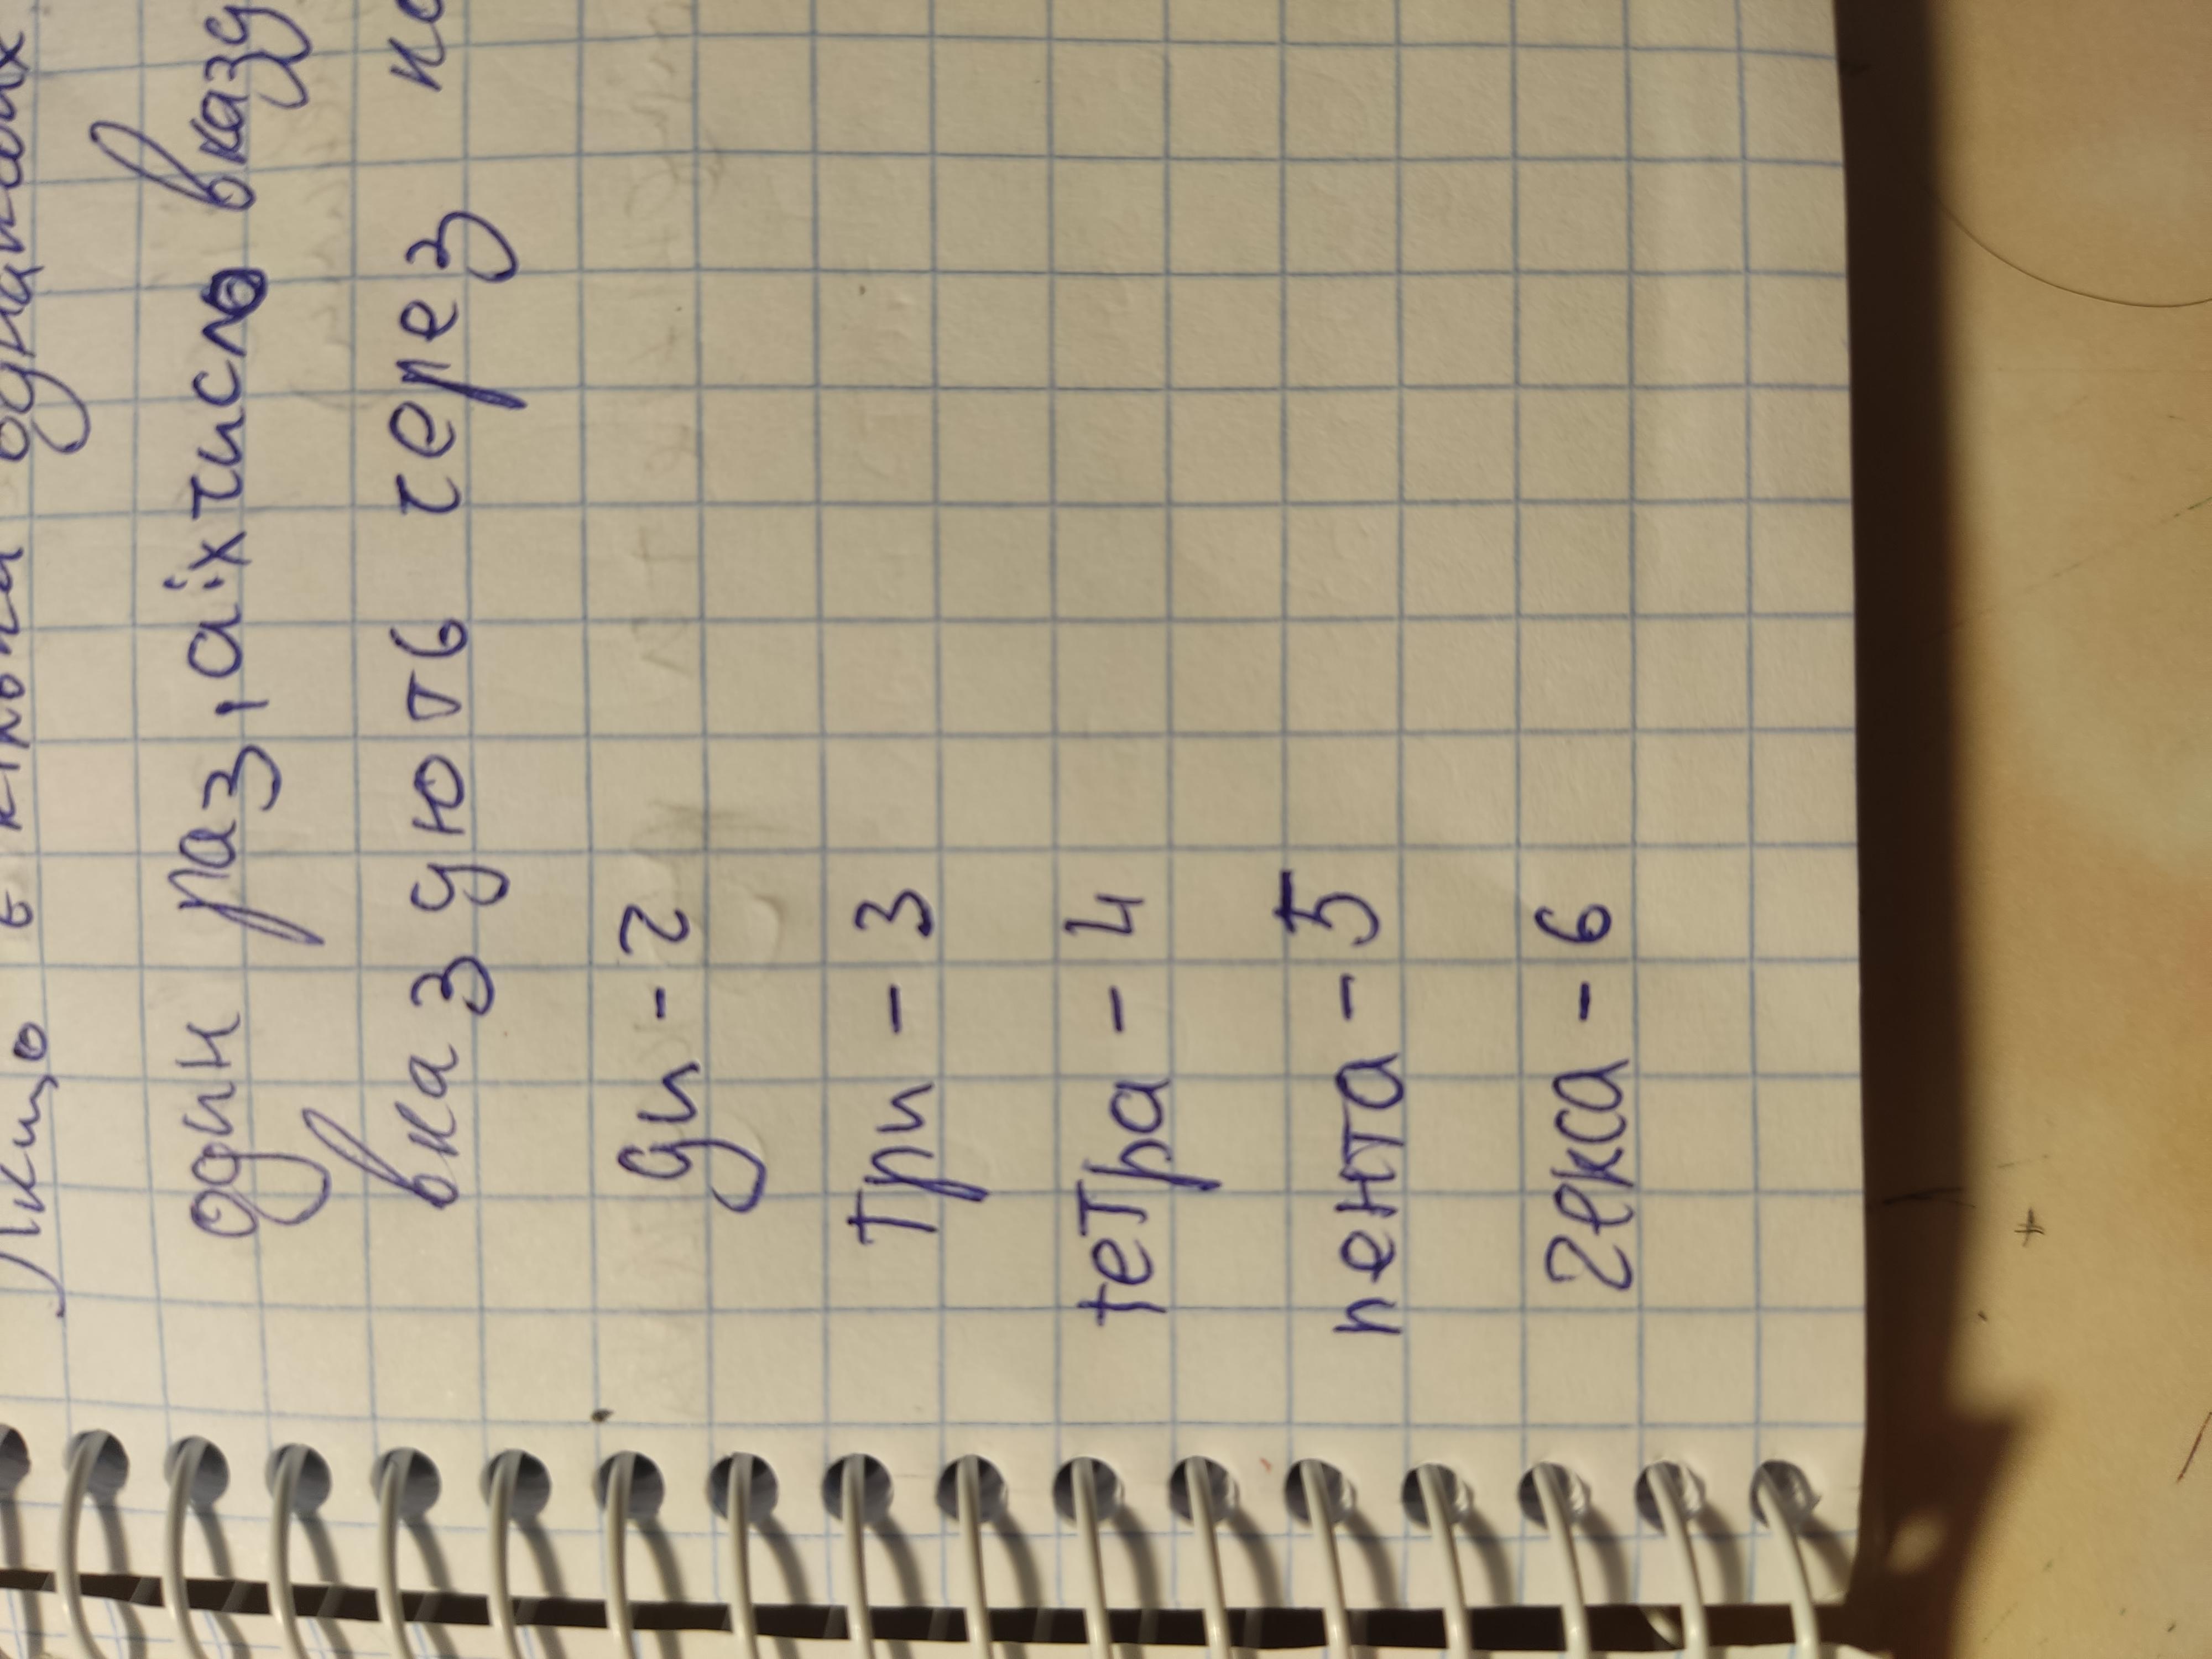 Якщо є кілька однакових
один раз, а їх число вказу
вказують через
ди - 2
Три - 3
тетра - 4
пента - 5
гекса - 6